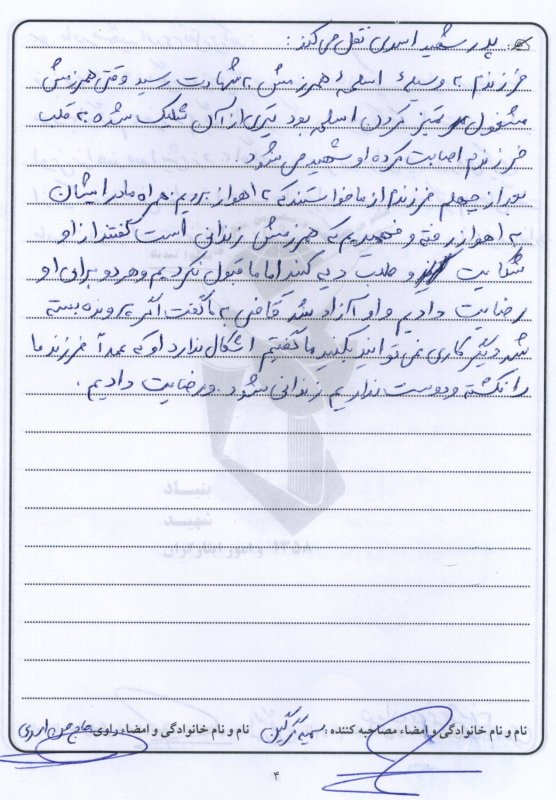 پدر شهید اسدی نقل می کند:
فرزندم به وسیلهٔ اسلحهٔ همرزمش به شهادت رسید وقتی همرزمش
مشغول تمیز کردن اسلحه بود تیری از آن شلیک شده به قلب
فرزندم اصابت کرده او شهید می شود.
بعد از چهلم فرزندم از ما خواستند که به اهواز برویم همراه مادر ایشان
به اهواز رفته و فهمیدیم که همرزمش زندانی است گفتند از او
شکایت و طلب دیه کنید اما ما قبول نکردیم و هر دو برای او
رضایت دادیم و او آزاد شد قاضی به ما گفت اگر پرونده بسته
شد دیگر کاری نمی توانید بکنید ما گفتیم اشکال ندارد او که عمداً فرزند ما
را نکشته و دوست نداریم زندانی شود. و رضایت دادیم.
بنیاد
شهید
و امور ایثارگران ۱۳۵۸
نام و نام خانوادگی و امضاء مصاحبه کننده: سمیه نام و نام خانوادگی و امضاء راوی: حاج حسن اسدی
۴